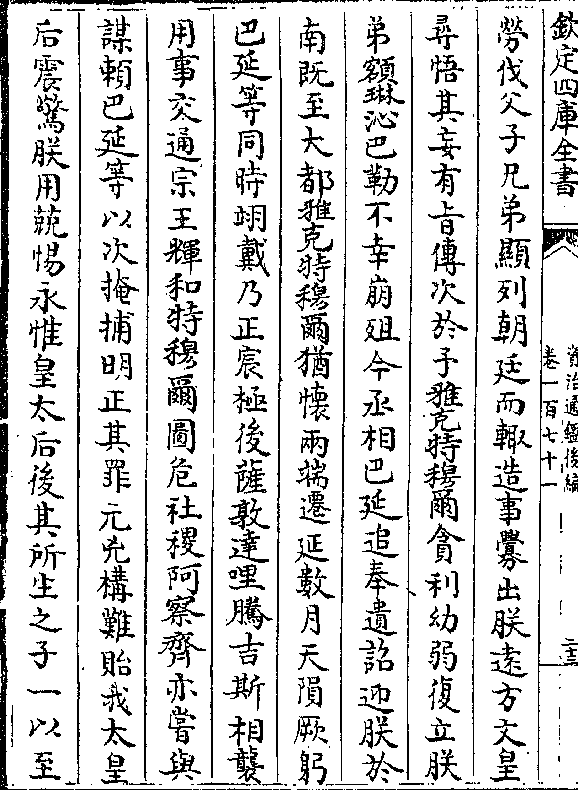 欽定四庫全書
資治通鑑後編
卷一百七十一
二三
勞伐父子兄弟顯列朝廷而輙造事釁出朕逺方文皇
尋悟其妄有㫖傳次於予雅克特穆爾貪利幼弱復立朕
弟額琳沁巴勒不幸崩殂今丞相巴延追奉遺詔迎朕於
南既至大都雅克特穆爾猶懐兩端遷延數月天隕厥躬
巴延等同時翊戴乃正宸極後薩敦達哩騰吉斯相襲
用事交通宗王輝和特穆爾圖危社稷阿察齊亦嘗與
謀頼巴延等以次掩捕明正其罪元兇構難貽我太皇
后震驚朕用兢惕永惟皇太后後其所生之子一以至